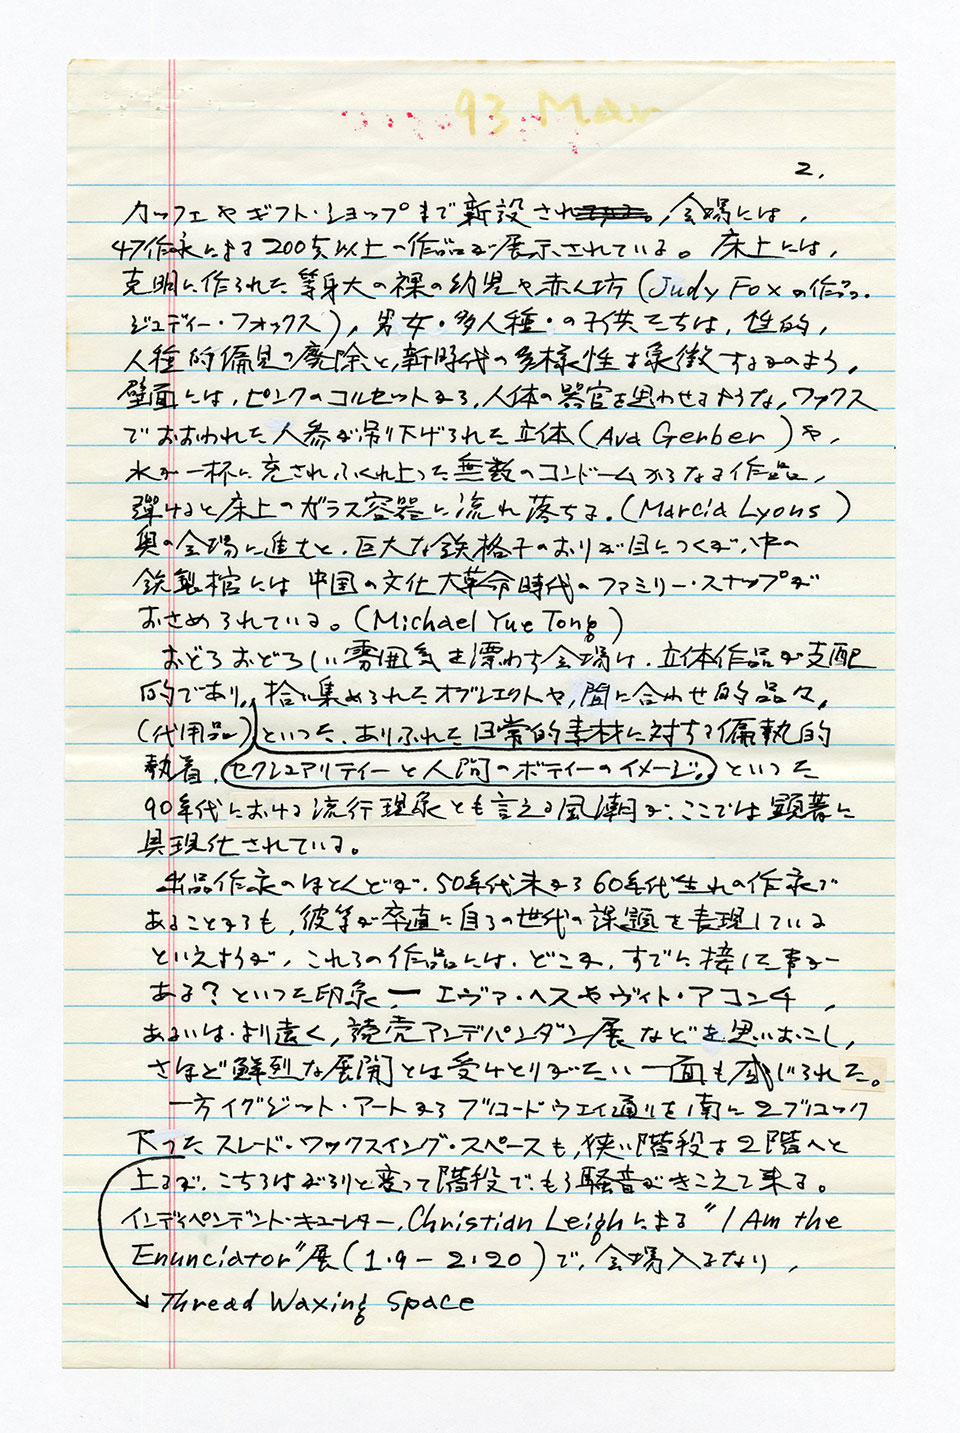 93 Mar
2.
カッフェやギフト・ショップまで新設され、会場には、
47作家による200点以上の作品が展示されている。床上には、
克明に作られた等身大の裸の幼児や赤ん坊(Judy Foxの作品.
ジュディー・フォックス)、男女・多人種・の子供たちは、性的,
人種的偏見の廃除と、新時代の多様性を象徴するかのよう。
壁面には、ピンクのコルセットから、人体の器官を思わせるような、ワックス
でおおわれた人参が吊り下げられた立体(Ava Gerber)や、
水が一杯に充されふくれ上った無数のコンドームからなる作品,
弾けると床上のガラス容器に流れ落ちる。(Marcia Lyons)
奥の会場に進むと、巨大な鉄格子のおりが目につくが、中の
鉄製棺には中国の文化大革命時代のファミリー・スナップが
おさめられている。(Michael Yue Tong)
おどろおどろしい雰囲気を漂わす会場は、立体作品が支配
的であり、拾い集められたオブジェクトや、間に合わせ的品々,
(代用品)といった、ありふれた日常的素材に対する偏執的
執着、セクシュアリティーと人間のボディーのイメージ。といった
90年代における流行現象とも言える風潮が、ここでは顕著に
具現化されている。
出品作家のほとんどが、50年代末から60年代生れの作家で
あることからも、彼等が卒直に自らの世代の課題を表現している
といえようが、これらの作品には、どこか、すでに接した事が
ある?といった印象、ー エヴァ・ヘスやヴィト・アコンチ,
あるいは・より遠く、読売アンデパンダン展などを思いおこし,
さほど鮮烈な展開とは受けとりがたい一面も感じられた。
一方イグジット・アートからブロードウェイ通りを南に2ブロック
下ったスレード・ワックスイング・スペースも、狭い階段を2階へと
上るが、こちらはがらりと変って階段で、もう騒音がきこえて来る。
インディペンデント・キューレター、Christian Leighによる"I Am the
Enunciator"展(1.9-2.20)で、会場入るなり,
Thread Waxing Space